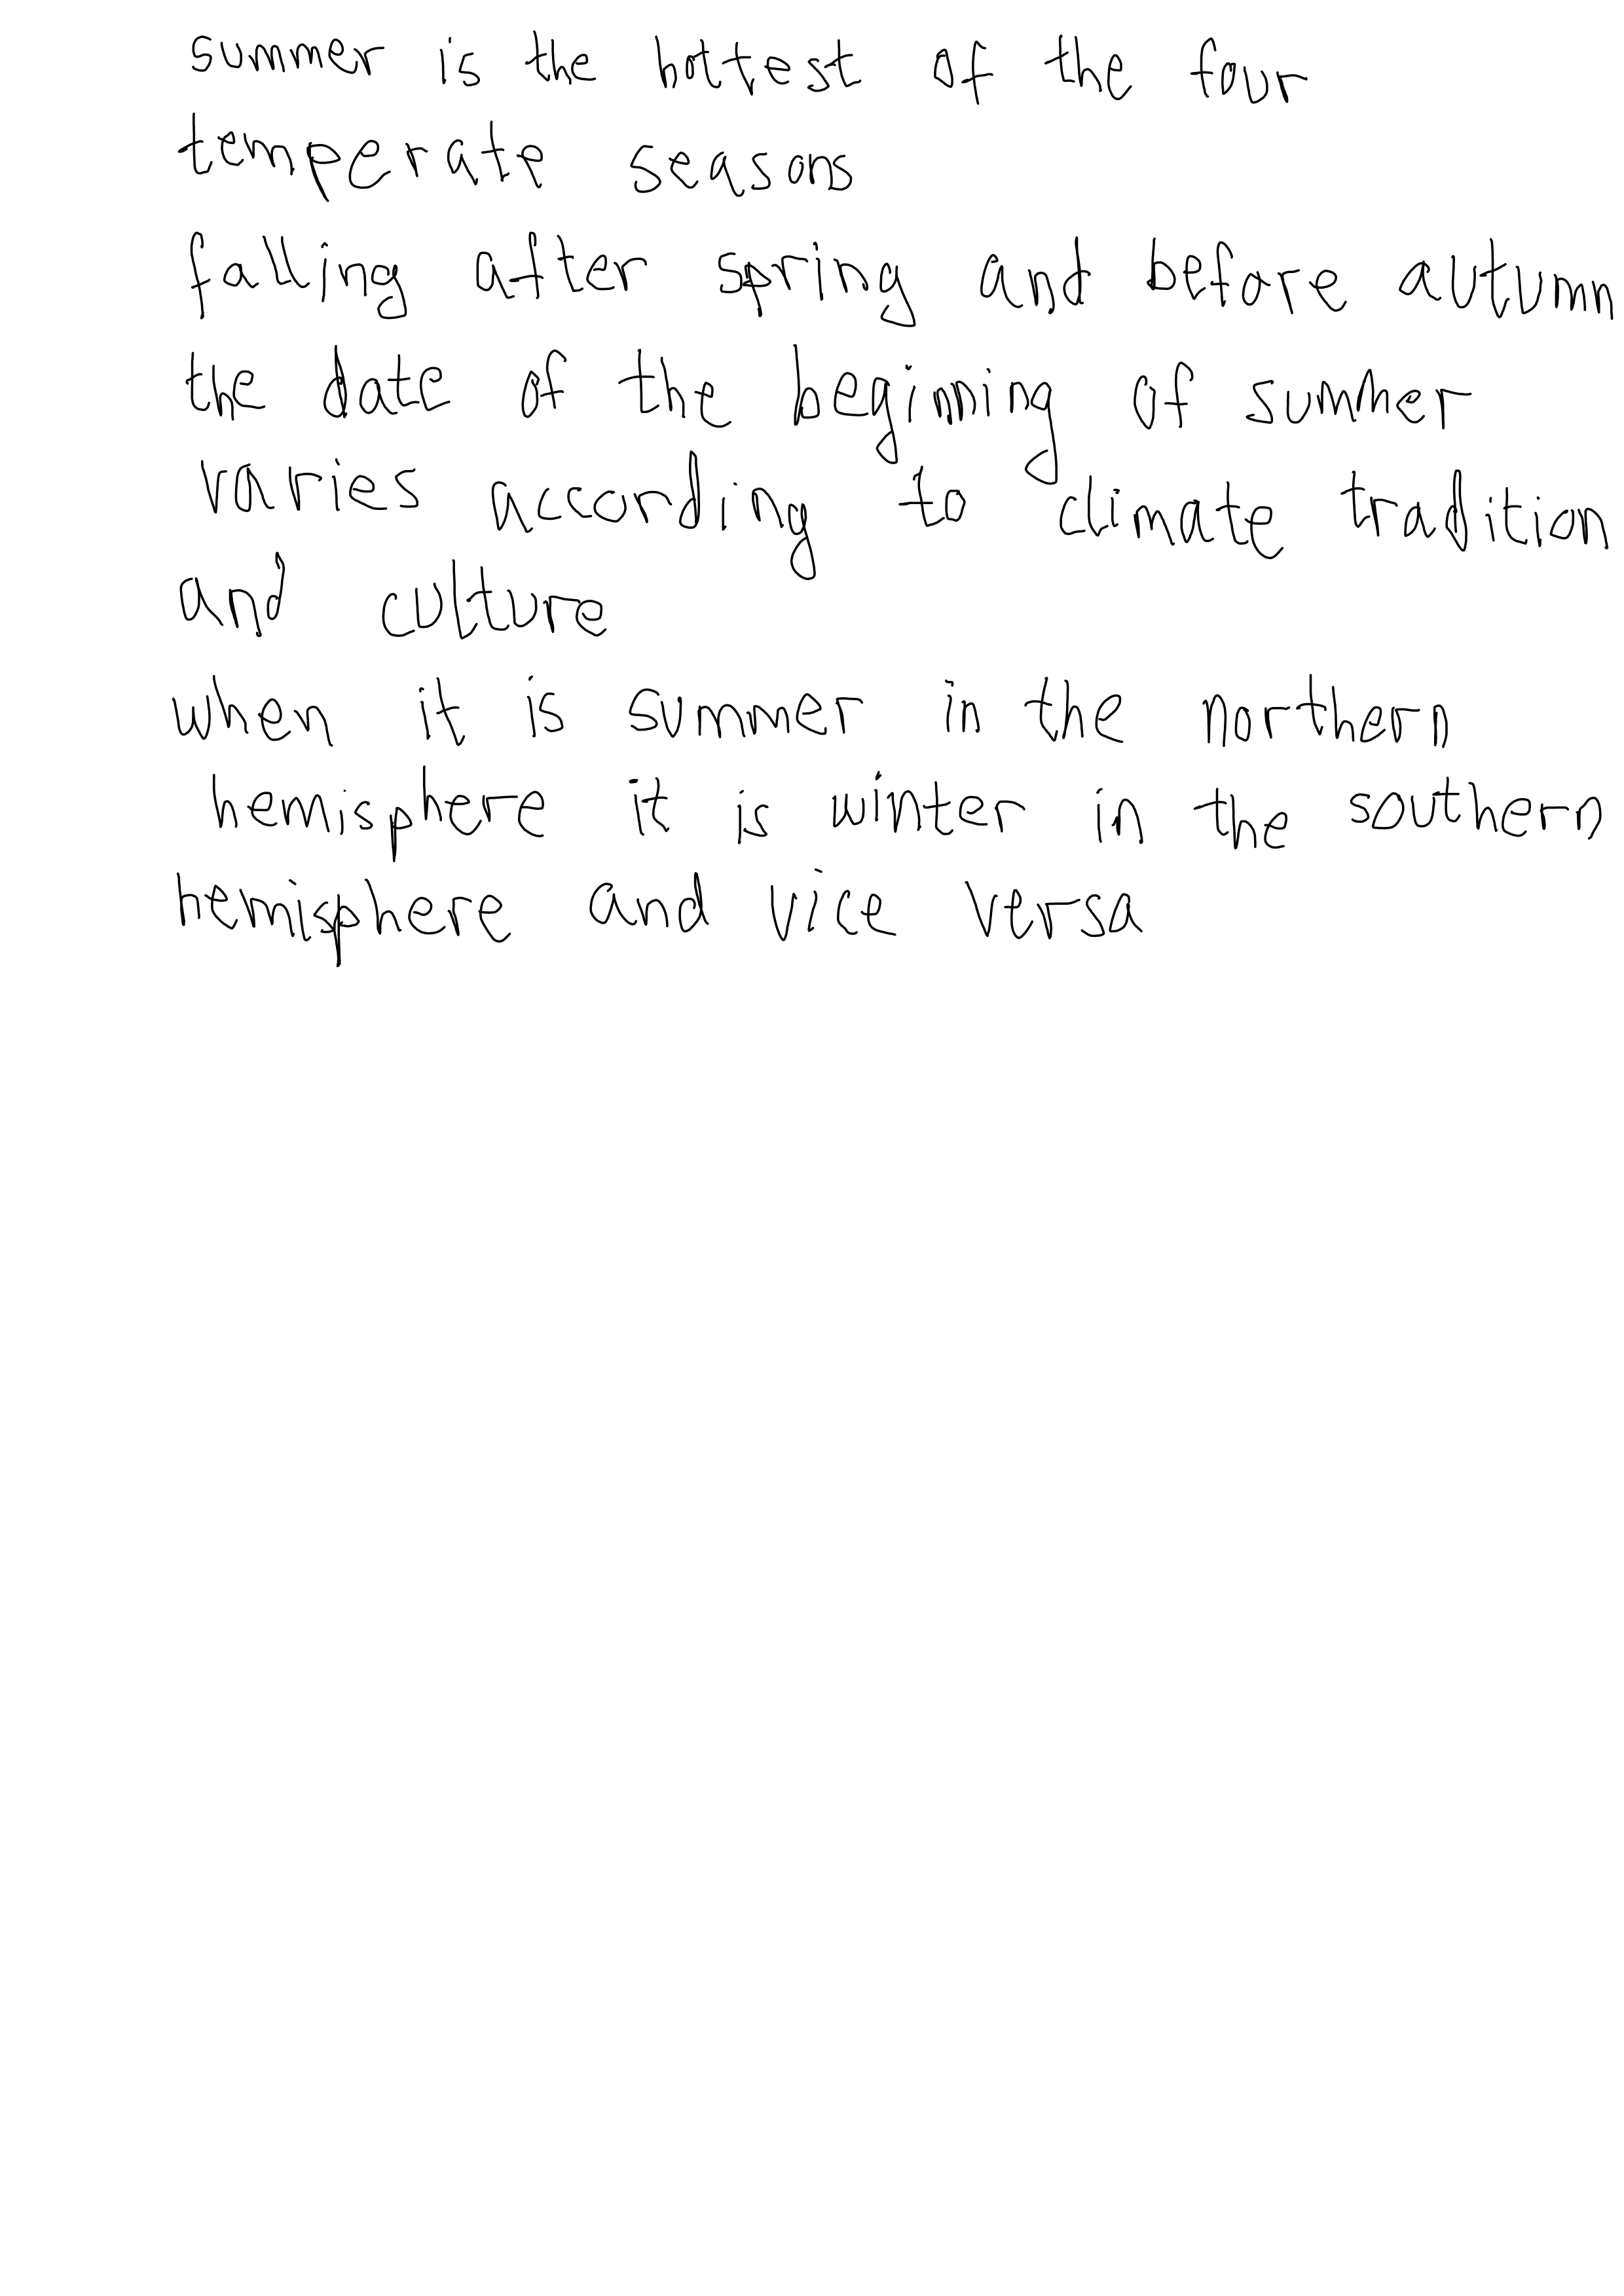 summer is the hottest of the four
temperate seasons
falling after spring and before autumn
the date of the beginning of summer
varies according to climate tradition
and culture
when it is summer in the northern
hemisphere it is winter in the southern
hemisphere and vice versa